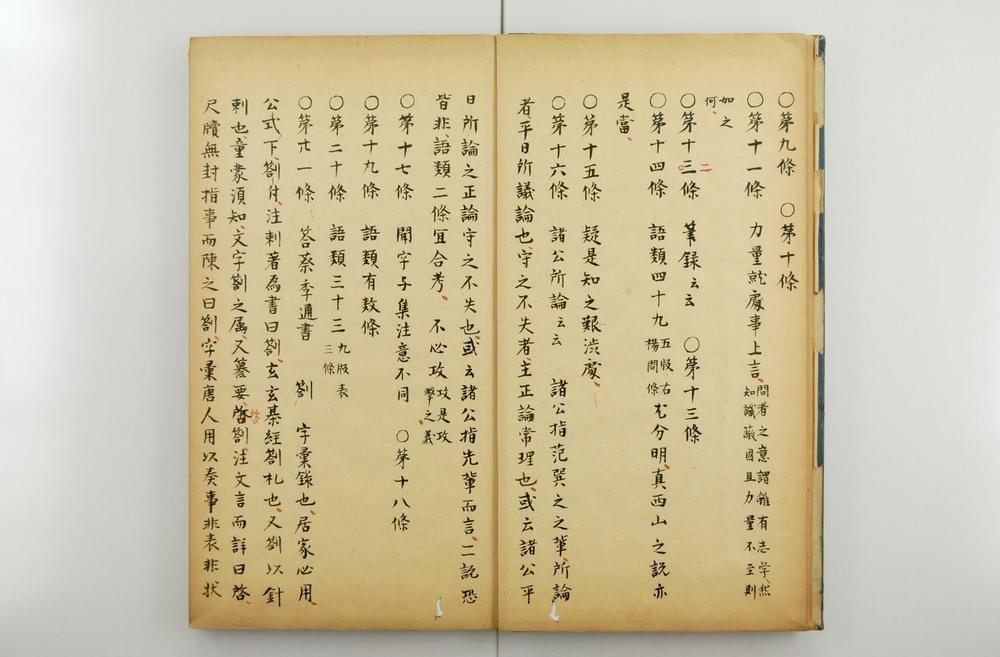 ○第九條　○第十條
○第十一條　力量就處事上言、問者之意謂雖有志学、然知識蔽固且力量不至則
如之何、
○第十二條　筆録云云　○第十三條
○第十四條　語類四十九五版右楊問條尤分明、真西山之説亦
是當、
○第十五條　疑是知之艱渋處、
○第十六條　諸公所論云云　諸公指范巽之之輩、所論
者、平日所議論也、守之不失者、主正論常理也、或云諸公平
日所論之正論守之不失也、或云諸公指先輩而言、二説恐
皆非、語類二條宜合考、　不必攻攻是攻擊之義
○第十七條　聞字与集注意不同　○第十八條
○第十九條　語類有数條
○第二十條　語類三十三九版表三條
○第廿一條　答蔡季通書　劄　字彙錄也、居家必用、
公式下、劄付、注刺著爲書曰劄、玄玄棊經劄札也、又劄以針
刺也、童蒙須知、文字劄之属、又纂要、啓劄、注文言而詳曰啓、
尺牘無封指事而陳之曰劄、字彙唐人用以奏事非表非状